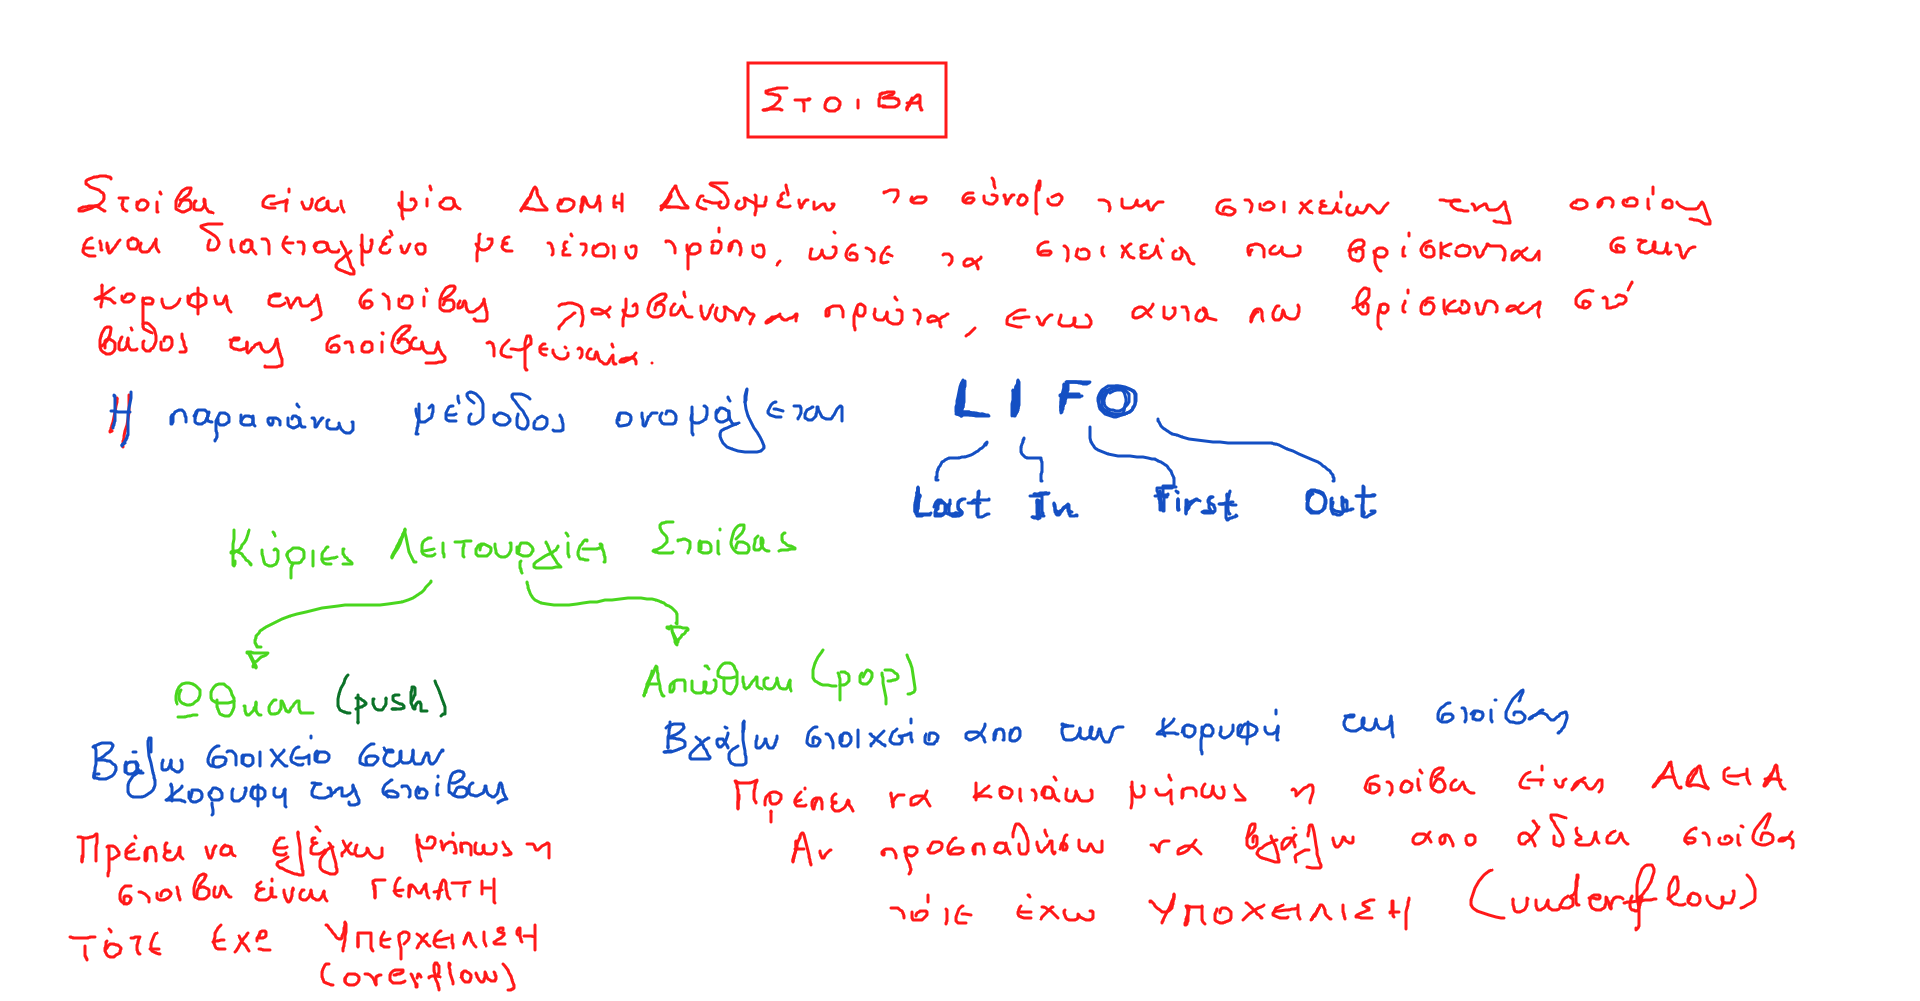 ΣΤΟΙΒΑ
Στοίβα είναι μία ΔΟΜΗ Δεδομένω το σύνολο των στοιχείων της οποίας
ειναι διατεταγμένο με τέτοιο τρόπο, ώστε τα στοιχεία που βρίσκονται στην
κορυφη της στοίβας λαμβάνονται πρώτα, ενω αυτα που βρίσκονται στό
βάθος της στοίβας τελευταία.
Η παραπάνω μέθοδος ονομάζεται LIFO
Last In First Out
Κύριες Λειτουργίες Στοίβας
Ωθηση (push)
Απώθηση (pop)
Βάζω στοιχείο στην
κορυφη της στοίβας
Βγάζω στοιχείο απο την κορυφή της στοίβας
Πρέπει να ελέγχω μήπως η
στοιβα είναι ΓΕΜΑΤΗ
Τότε έχω ΥΠΕΡΧΕΙΛΙΣΗ
(overflow)
Πρέπει να κοιτάω μήπως η στοίβα είναι ΑΔΕΙΑ
Αν προσπαθήσω να βγάλω απο άδεια στοίβα
τότε έχω ΥΠΟΧΕΙΛΙΣΗ (underflow)